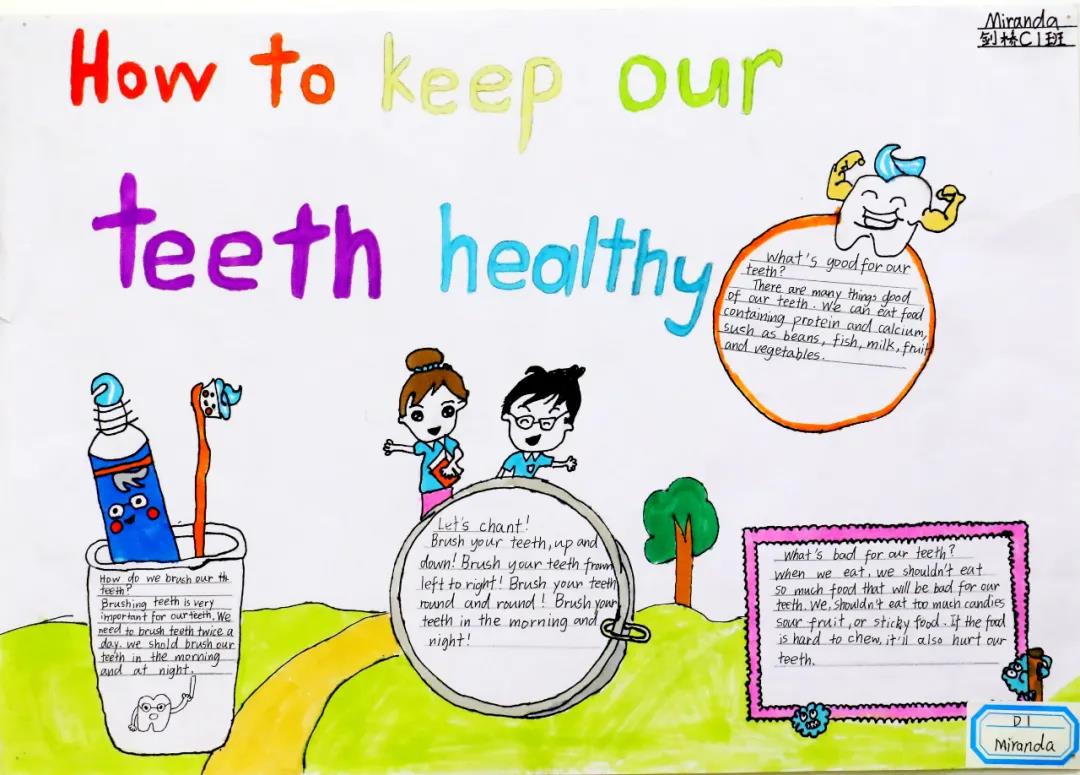 Miranda
剑桥C1班
How to keep our
teeth healthy
What's good for our
teeth?
There are many things good
of our teeth. We can eat food
containing protein and calcium,
such as beans, fish, milk, fruit
and vegetables.
Let's chant!
Brush your teeth, up and
down! Brush your teeth from
left to right! Brush your teeth
round and round! Brush your
teeth in the morning and
night!
How do we brush our th
teeth?
Brushing teeth is very
important for our teeth. We
need to brush teeth twice a
day. we shold brush our
teeth in the morning
and at night.
What's bad for our teeth?
When we eat, we shouldn't eat
so much food that will be bad for our
teeth. We, shouldn't eat too much candies
sour fruit, or sticky food. If the food
is hard to chew, it'll also hurt our
teeth.
D1
Miranda